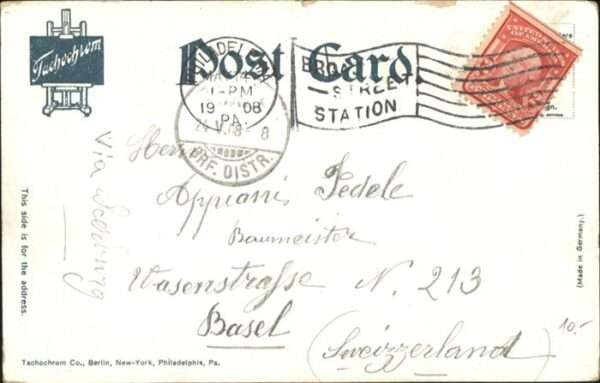 Tachochrom
Post Card.
PHILADELPHIA
1-PM
19 08
PA.
BROAD
STREET
STATION
UNITED STATES OF AMERICA
24.V.08- 8
BRF. DISTR.
Via
Herrn
Appiani Fedele
Baumeister
Wasenstrasse N. 213
Basel
(Sweizzerland)
10.-
This side is for the address.
(Made in Germany.)
Tachochrom Co., Berlin, New-York, Philadelphia, Pa.